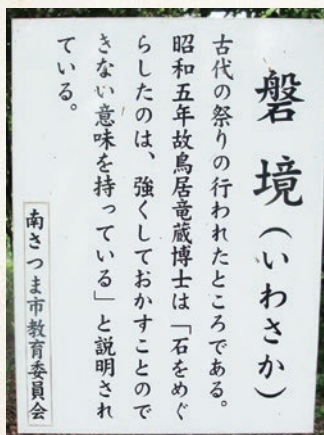 磐境（いわさか）
古代の祭りの行われたところである。
昭和五年故鳥居竜蔵博士は「石をめぐ
らしたのは、強くしておかすことので
きない意味を持っている」と説明され
ている。
南さつま市教育委員会